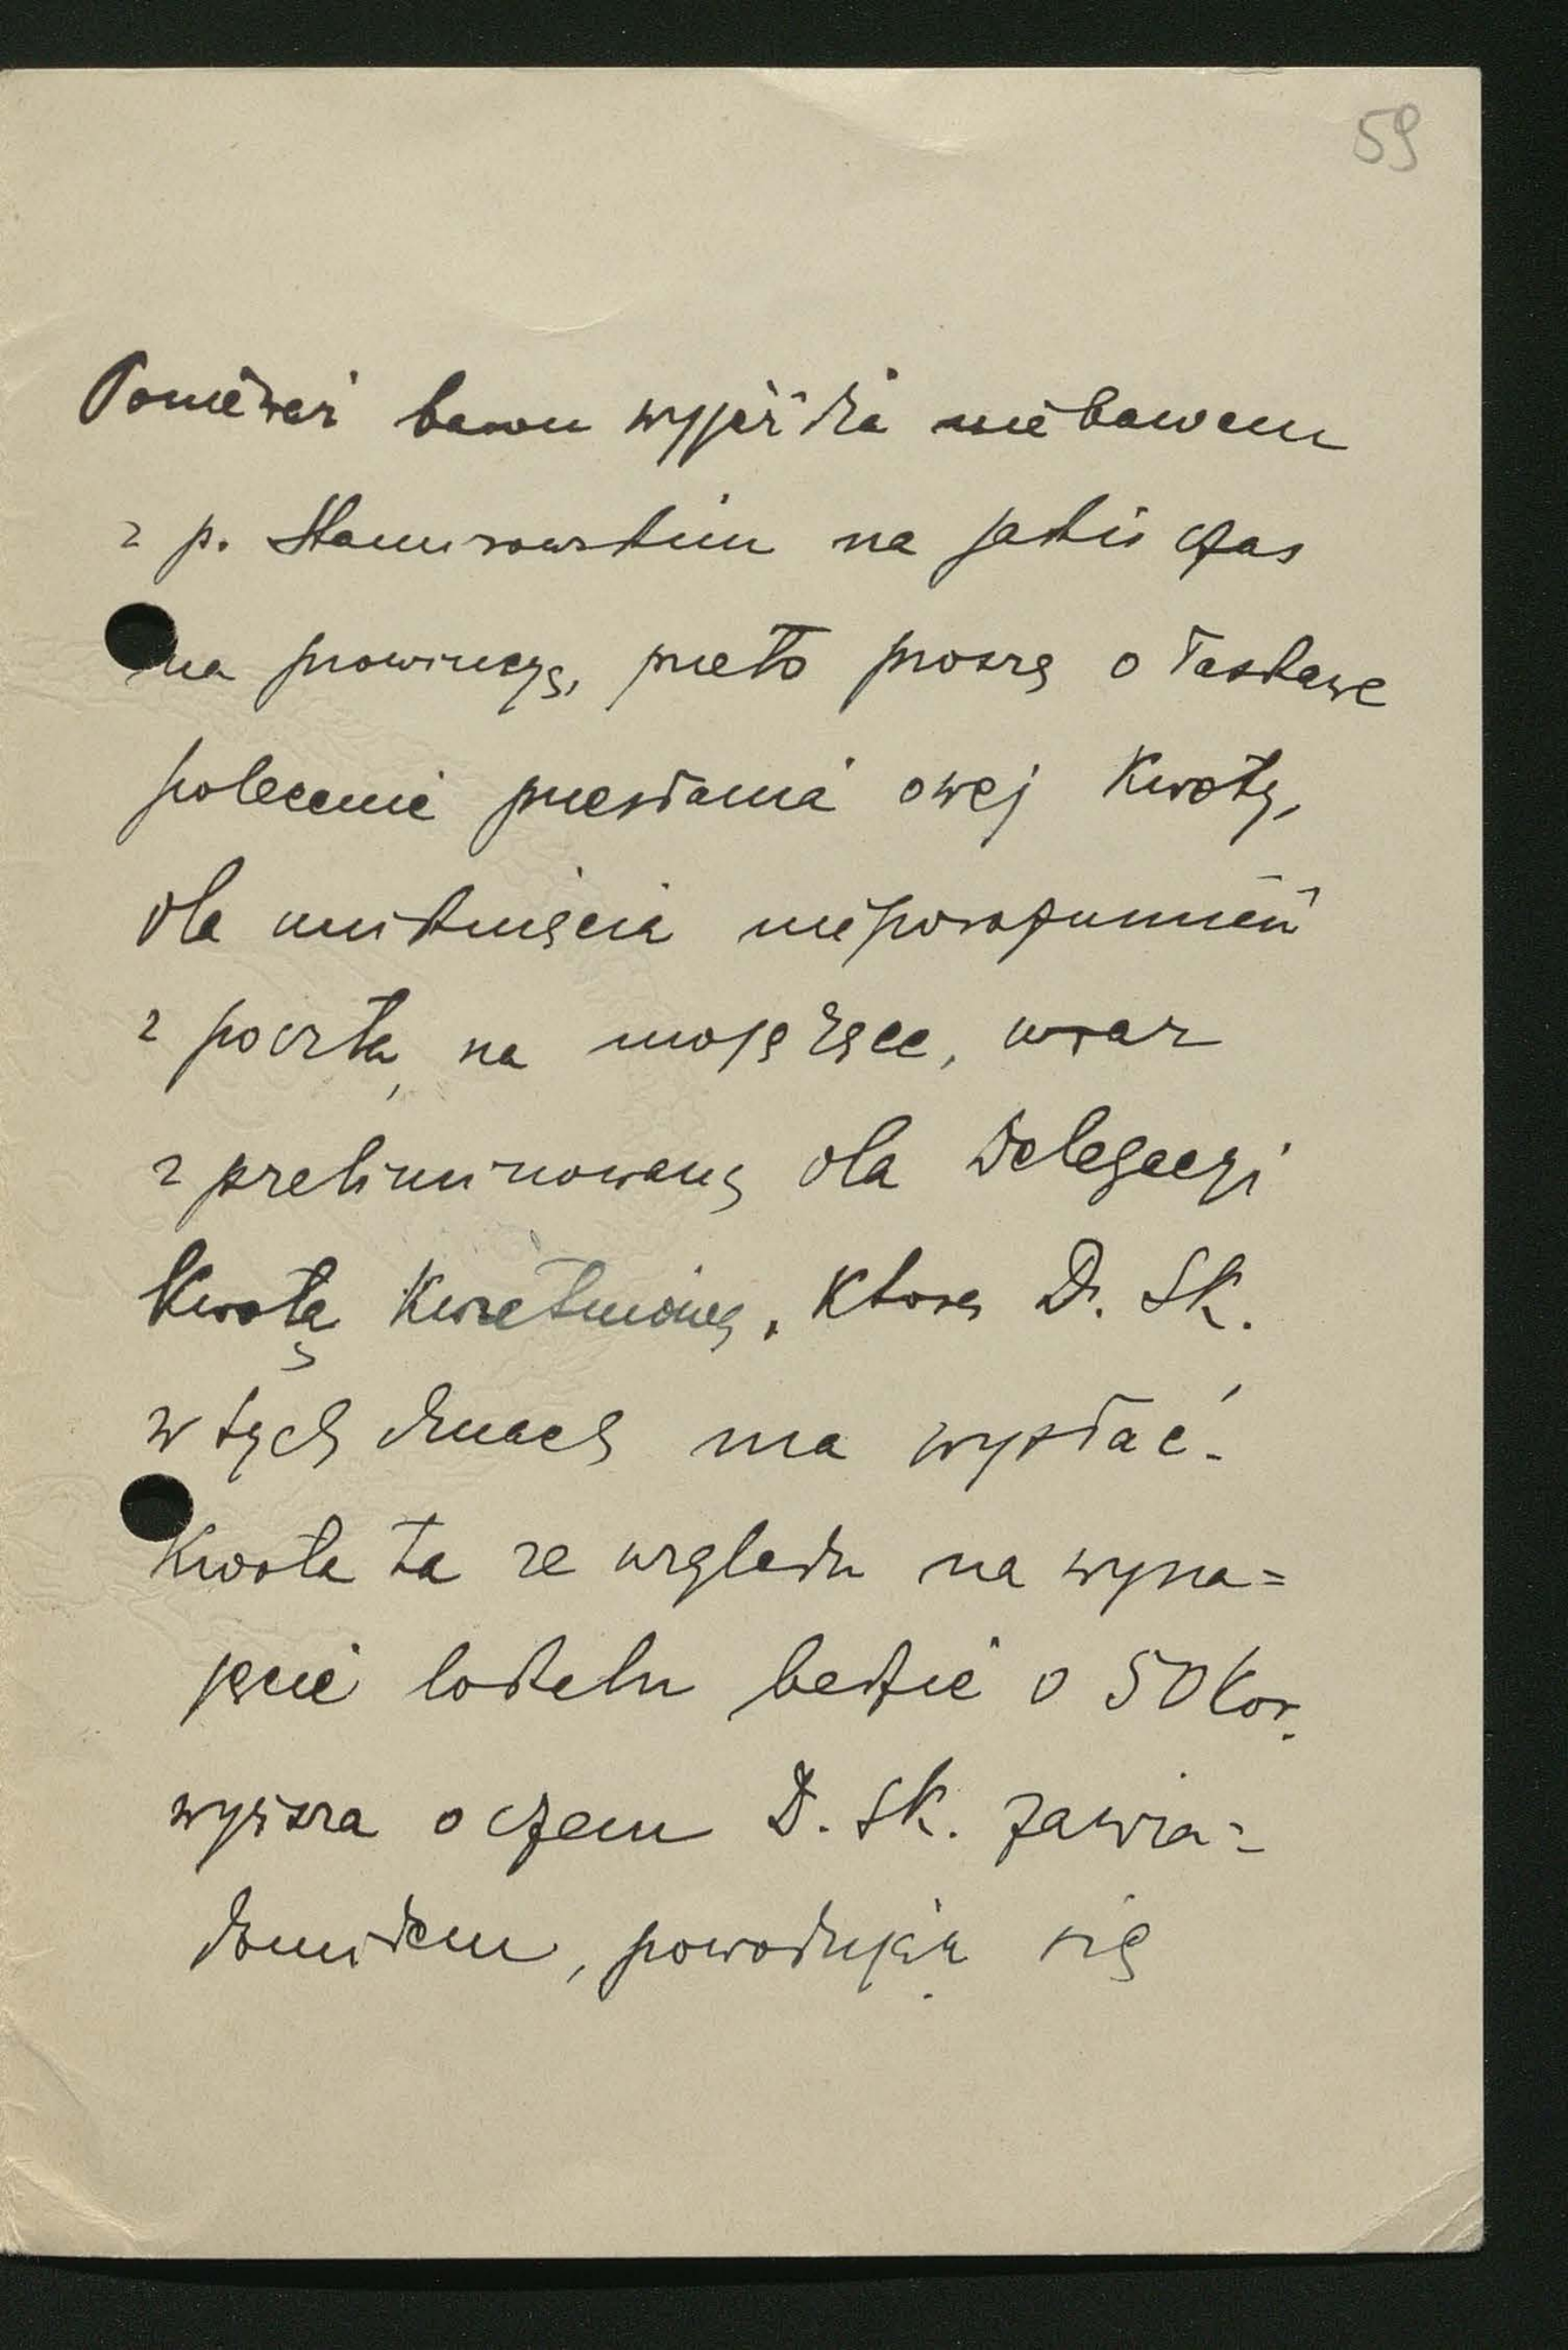 59
Ponieważ baron wyjeżdża niebawem
z p. Stamirowskim na jakiś czas
na prowincyę, przeto proszę o łaskawe
polecenie przesłania owej kwoty,
dla uniknięcia nieporozumień
z pocztą, na moje ręce, wraz
z preliminowaną dla Delegacyi
kwotą kwietniową, którą Dr. SK.
w tych dniach ma wysłać.
Kwota ta ze względu na wyna=
jęcie lokalu będzie o 50 kor.
wyższa o czem D. SK. zawia=
domiłem, powodując się